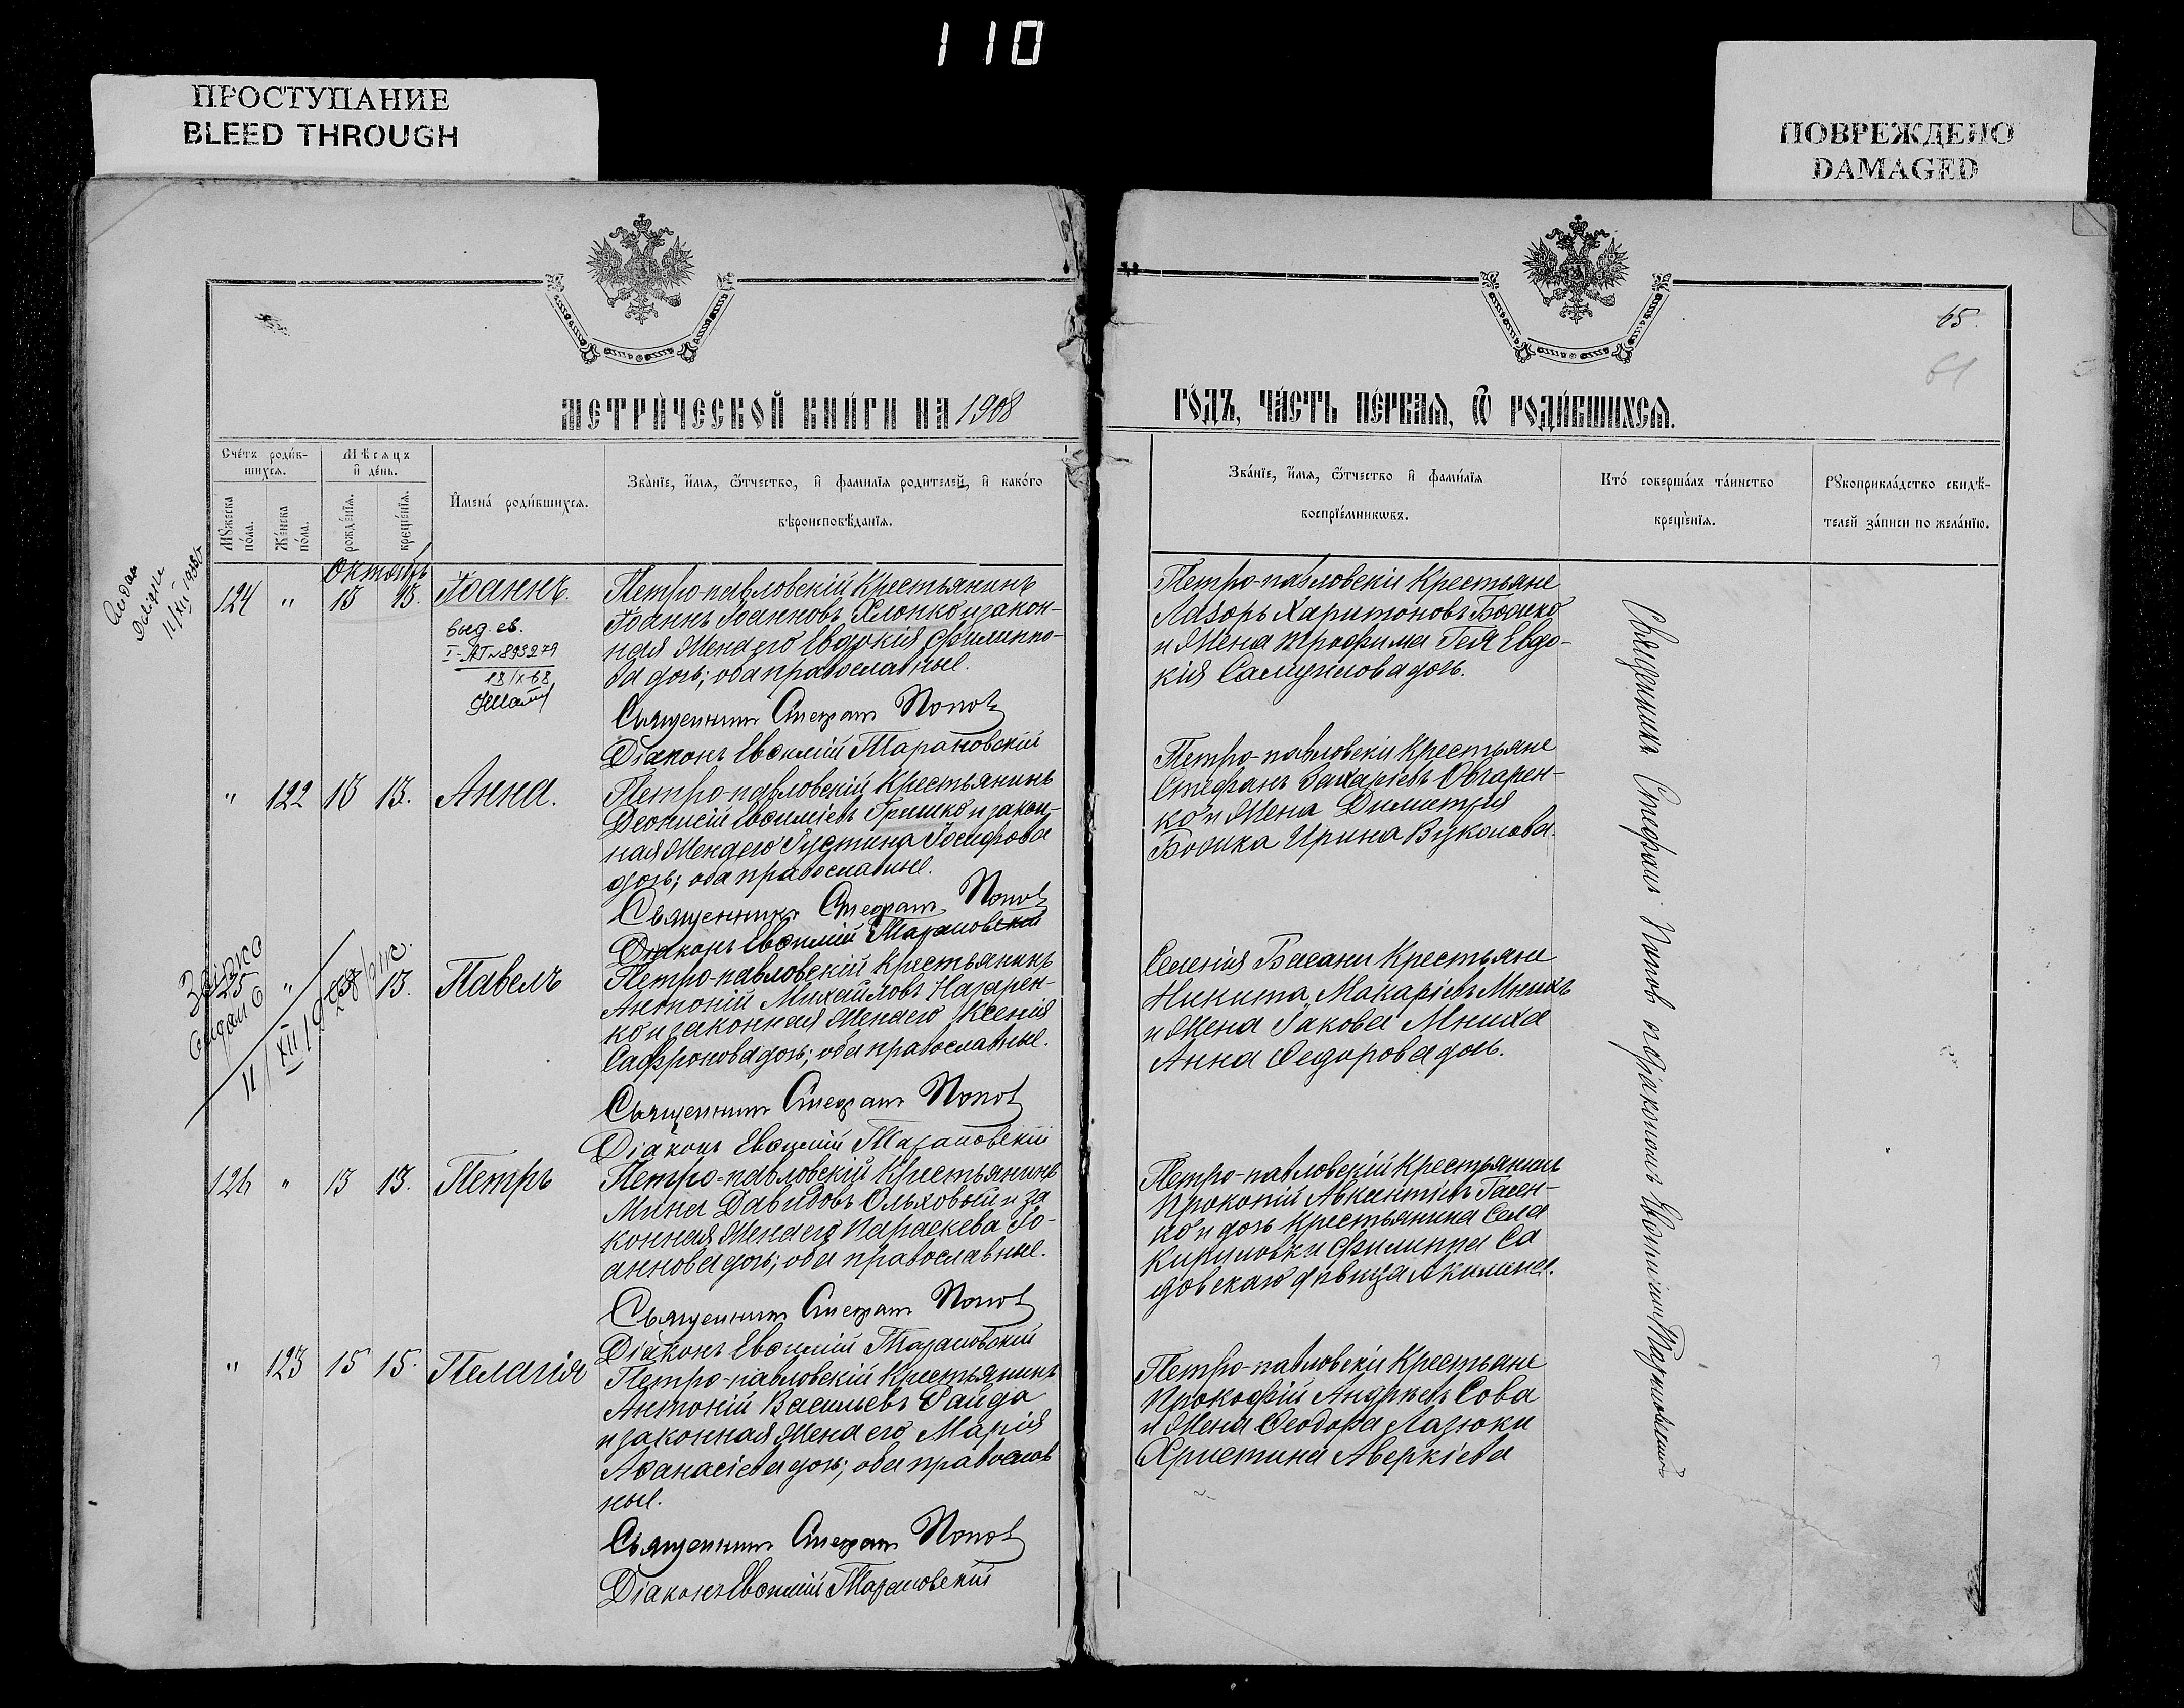 110
ПРОСТУПАНИЕ
BLEED THROUGH
ПОВРЕЖДЕНО
DAMAGED
65.
61
МЕТРИ́ЧЕСКОЙ КНИ́ГИ НА 1908
ГО́ДЪ, ЧА́СТЬ ПЕ́РВАЯ, Ѿ РОДИ́ВШИХСЯ.
Сче́тъ роди́в-
шихся.
Мѣсяцъ
и де́нь.
Му́жеска
по́ла.
Же́нска
по́ла.
рожде́нїя.
креще́нїя.
Имена́ роди́вшихся.
Зва́нїе, и́мя, ѻ́тчество, и фами́лїя родителей, и како́го
вѣроисповѣ́данїя.
Зва́нїе, и́мя, ѻ́тчество и фами́лїя
воспрїе́мникωвъ.
Кто́ соверша́лъ та́инство
креще́нїя.
Рукоприкла́дство свидѣ́-
телей за́писи по жела́нїю.
Октябрь
124 " 13 13. Іоаннъ.
выд. св.
I-АП № 893279
18/X-68
Петро-павловскій крестьянинъ
Іоаннъ Іоанновъ Хлопко и закон-
ная жена его Евдокія Филиппо-
ва дочь; оба православные.
Священникъ Стефанъ Поповъ
Діаконъ Евфимій Тарановскій
Петро-павловскіи крестьяне
Лазорь Харитоновъ Босико
и жена Трофима Гея Евдо-
кія Самуилова дочь.
" 122 13 13. Анна.
Петро-павловскій крестьянинъ
Деонисій Евфиміевъ Гришко и закон-
ная жена его Іустина Іосифова
дочь; оба православные.
Священникъ Стефанъ Поповъ
Діаконъ Евфимій Тарановскій
Петро-павловскіи крестьяне
Стефанъ Захаріевъ Овчарен-
ко и жена Димитрія
Босика Ирина Вуколова.
125 " 13. Павелъ
11/XII
Петро-павловскій крестьянинъ
Антоній Михайловъ Назарен-
ко и законная жена его Ксенія
Сафронова дочь; оба православные.
Священникъ Стефанъ Поповъ
Діаконъ Евфимій Тарановскій
Селенія Басани крестьяне
Никита Макаріевъ Мнихъ
и жена Іакова Мниха
Анна Федорова дочь.
126 " 13 13. Петръ
Петро-павловскій крестьянинъ
Мина Давидовъ Ольховый и за
конная жена его Параскева Іо-
аннова дочь; оба православные.
Священникъ Стефанъ Поповъ
Діаконъ Евфимій Тарановскій
Петро-павловскій крестьянинъ
Прокопій Авксентіевъ Гасен-
ко и дочь крестьянина села
Кириловки Филиппа Са
довскаго дѣвица Акилина.
" 123 15 15. Пелагія
Петро-павловскій крестьянинъ
Антоній Васильевъ Сайда
и законная жена его Марія
Афанасіева дочь; оба православ
ные.
Священникъ Стефанъ Поповъ
Діаконъ Евфимій Тарановскій
Петро-павловскіи крестьяне
Прокофій Андреевъ Сова
и жена Феодора Лазюки
Христина Аверкіева
Священникъ Стефанъ Поповъ съ діакономъ Евфиміемъ Тарановскимъ